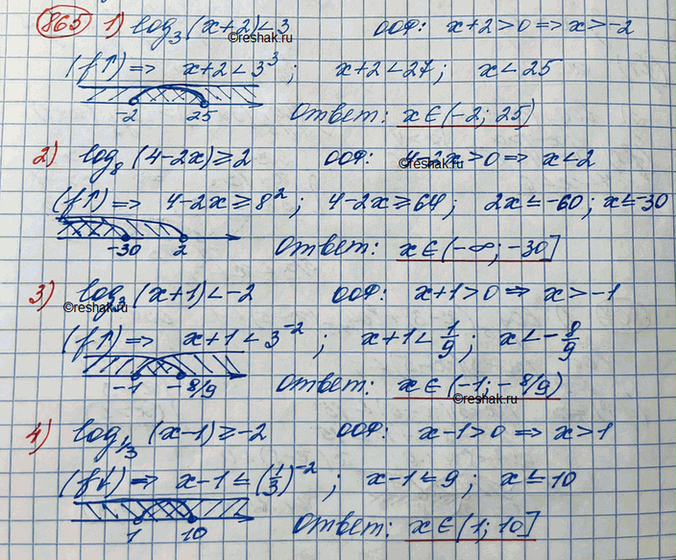 865 1) log₃ (x+2) < 3 ООФ: x+2>0 => x>-2
©reshak.ru
(f↑) => x+2 < 3³; x+2 < 27; x < 25
-2 25 Ответ: x∈(-2; 25)
2) log₈ (4-2x) ≥ 2 ООФ: 4-2x>0 => x<2
©reshak.ru
(f↑) => 4-2x ≥ 8²; 4-2x ≥ 64; 2x ≤ -60; x ≤ -30
-30 2 Ответ: x∈(-∞; -30]
3) log₃ (x+1) < -2 ООФ: x+1>0 => x>-1
©reshak.ru
(f↑) => x+1 < 3⁻²; x+1 < 1/9; x < -8/9
-1 -8/9 Ответ: x∈(-1; -8/9)
©reshak.ru
4) log₁/₃ (x-1) ≥ -2 ООФ: x-1>0 => x>1
(f↓) => x-1 ≤ (1/3)⁻²; x-1 ≤ 9; x ≤ 10
1 10 Ответ: x∈(1; 10]